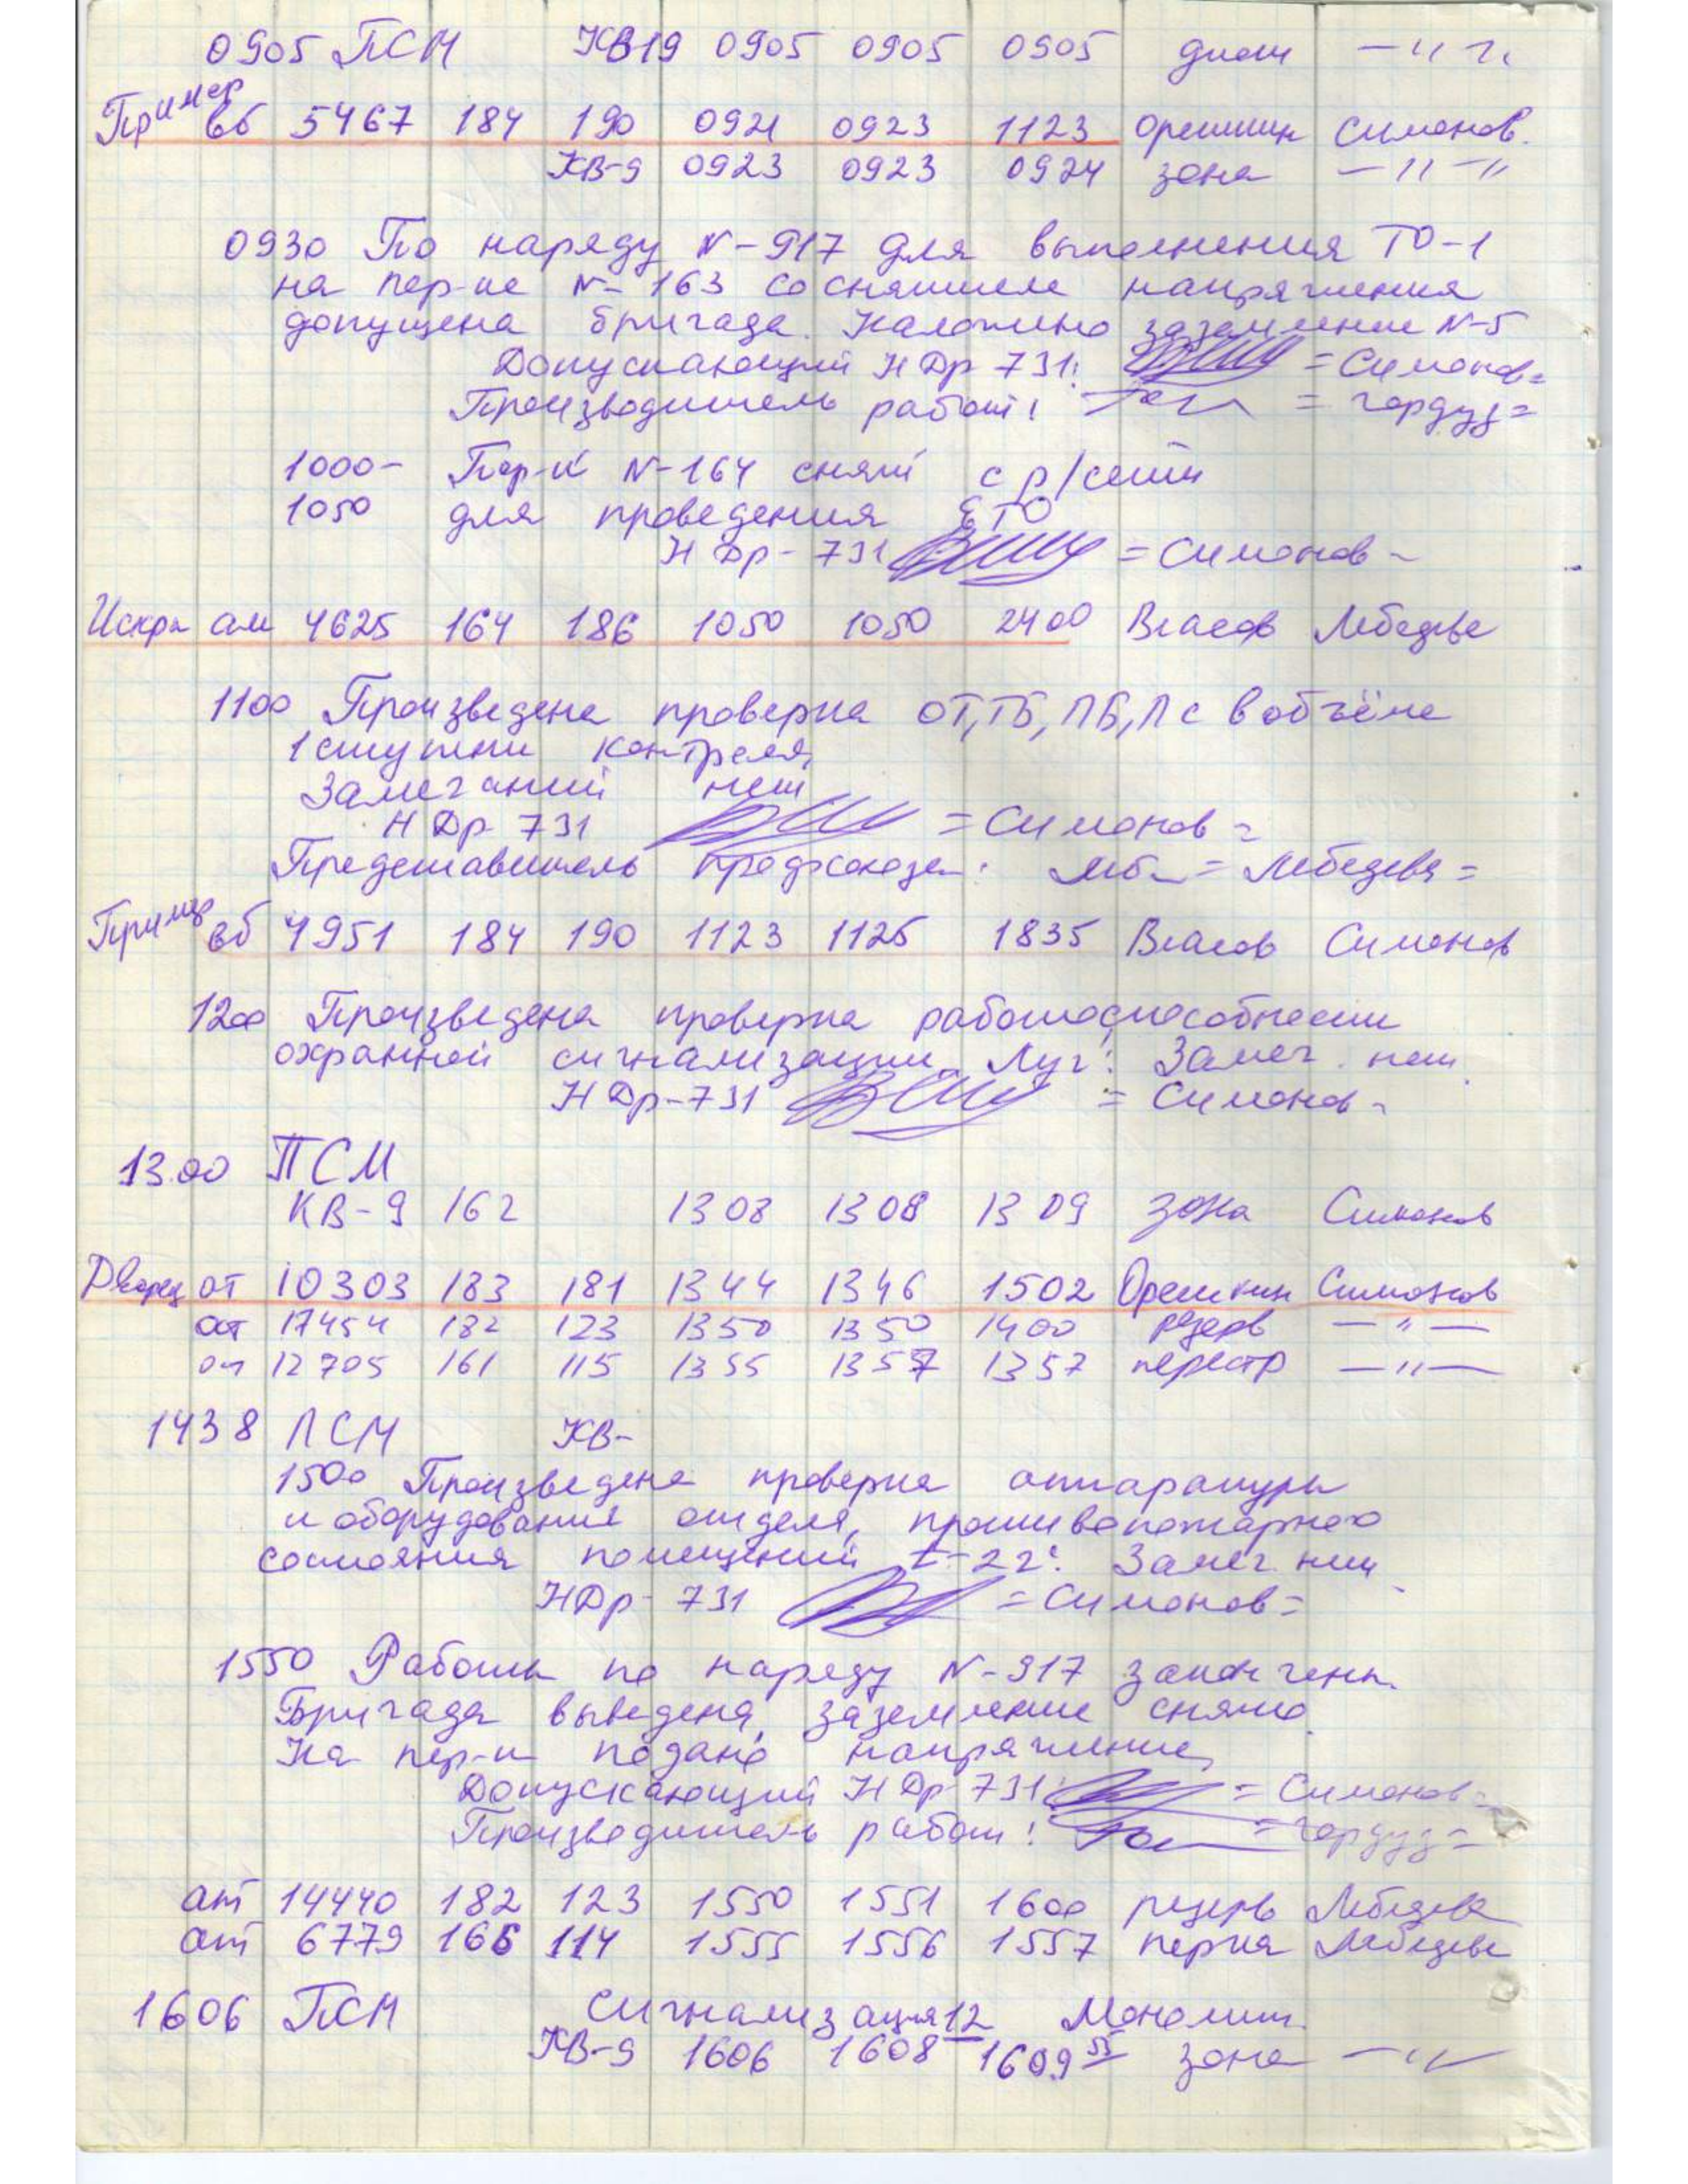 0905 ПСМ КВ19 0905 0905 0905 — " —
Пример вб 5467 184 190 0921 0923 1123 Орешкин Симонов.
КВ-9 0923 0923 0924 зона — " —
0930 По наряду N-917 для выполнения ТО-1
на пер-ке N-163 со снятием напряжения
допущена бригада. Наложено заземление N-5
Допускающий НДр 731: = Симонов =
Производитель работ: =
1000- Пер-к N-164 снят с р/сети
1050 для проведения ЕТО
НДр-731 = Симонов -
Искра ам 4625 164 186 1050 1050 2400 Власов Лебедева
1100 Произведена проверка ОТ,ТБ,ПБ,Пс в объёме
1 ступени контроля.
Замечаний нет
НДр 731 = Симонов =
Представитель профсоюза: = Лебедева =
Пример вб 4951 184 190 1123 1126 1835 Власов Симонов
1200 Произведена проверка работоспособности
охранной сигнализации Луч: Замеч. нет.
НДр-731 = Симонов -
13.00 ПСМ
КВ-9 162 1308 1308 1309 зона Симонов
Дворец от 10303 183 181 1344 1346 1502 Орешкин Симонов
от 17454 182 123 1350 1350 1400 резерв — " —
от 12705 161 115 1355 1357 1357 перестр — " —
1438 ПСМ КВ-
1500 Произведена проверка аппаратуры
и оборудования отдела, противопожарного
состояния помещений t-22°. Замеч. нет
НДр-731 = Симонов =
1550 Работы по наряду N-917 закончены.
Бригада выведена, заземление снято.
На пер-к подано напряжение,
Допускающий НДр 731: = Симонов -
Производитель работ: =
ат 14440 182 123 1550 1551 1600 резерв Лебедева
ат 6779 166 114 1555 1556 1557 Лебедева
1606 ПСМ Сигнализация 12 Монолит.
КВ-9 1606 1608 1609 55 зона — " —